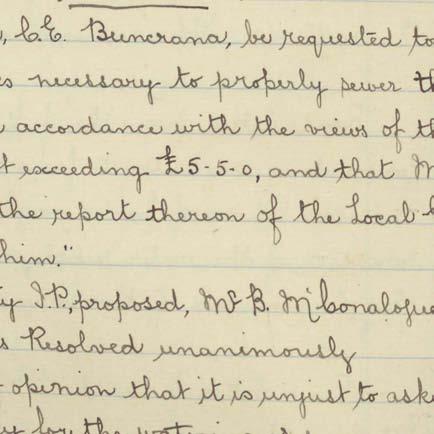 , C.E. Buncrana, be requested to
necessary to properly sewer th
accordance with the views of th
t exceeding £5-5-0, and that M
the report thereon of the Local
him."
ty J.P., proposed, Mr B. McConalogue
s Resolved unanimously
opinion that it is unjust to ask
y for the